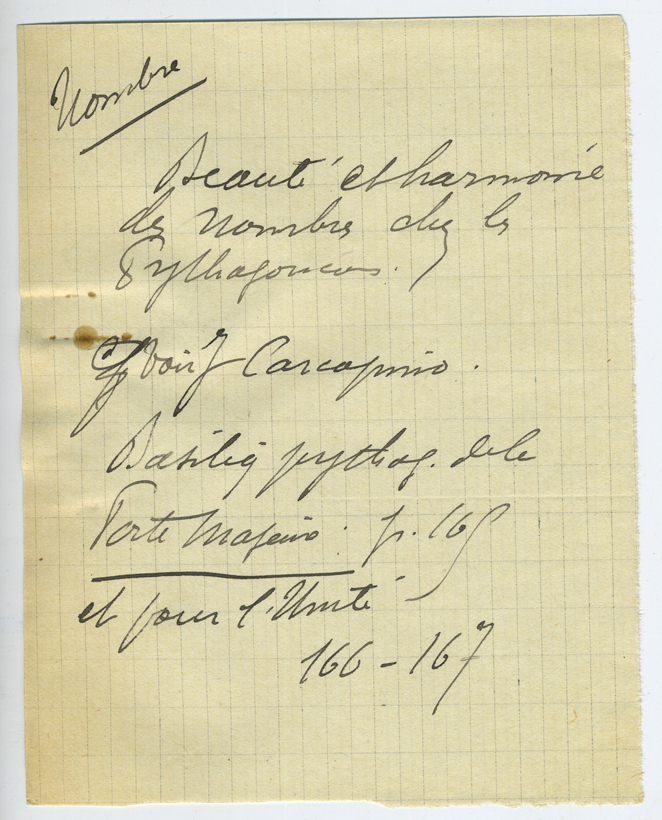 Nombre
Beauté et harmonie
des nombres chez les
Pythagoriciens.
voir Carcopino.
Basiliq pythag. de la
Porte Majeure. p. 165
et pour l'Unité
166-167